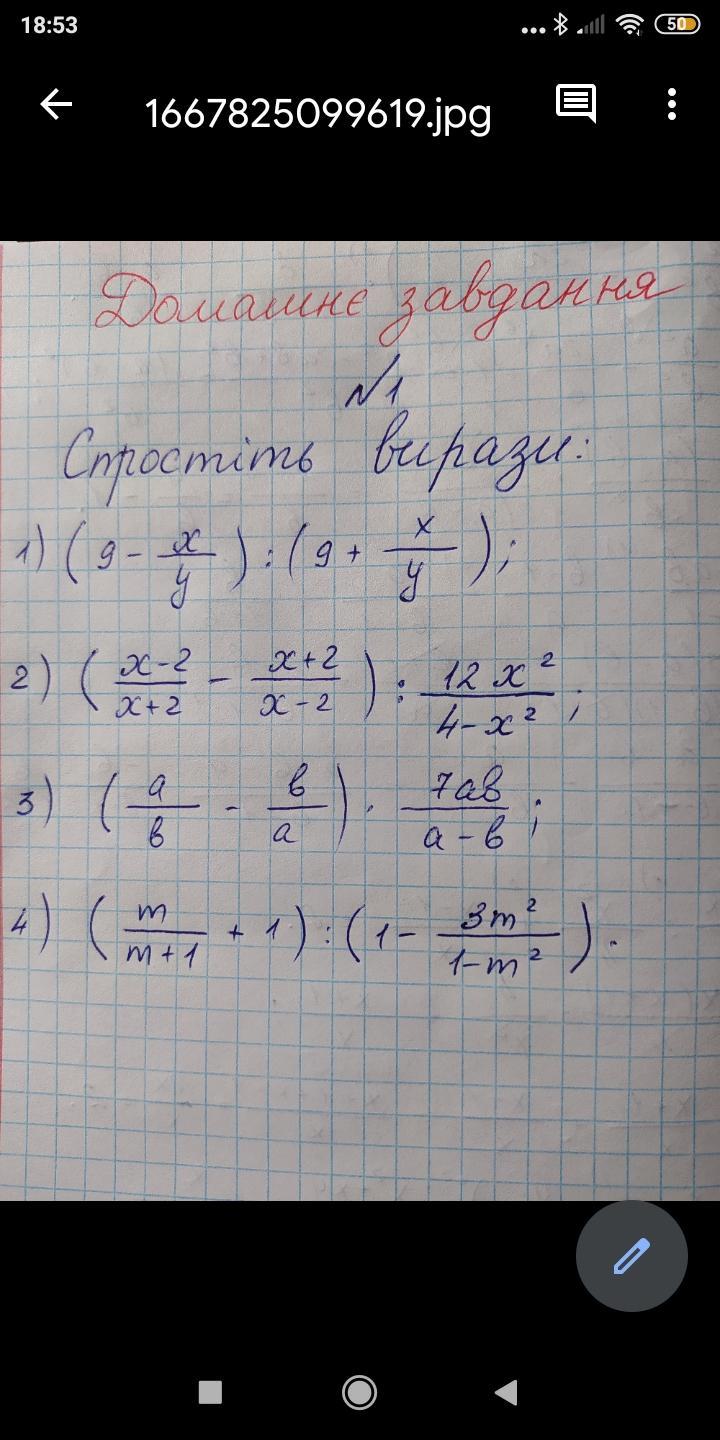 18:53
50
1667825099619.jpg
Домашнє завдання
№1
Спростіть вирази:
1) (9 - x/y) : (9 + x/y);
2) (x-2/x+2 - x+2/x-2) : 12x²/4-x²;
3) (a/b - b/a) · 7ab/a-b;
4) (m/m+1 + 1) : (1 - 3m²/1-m²).